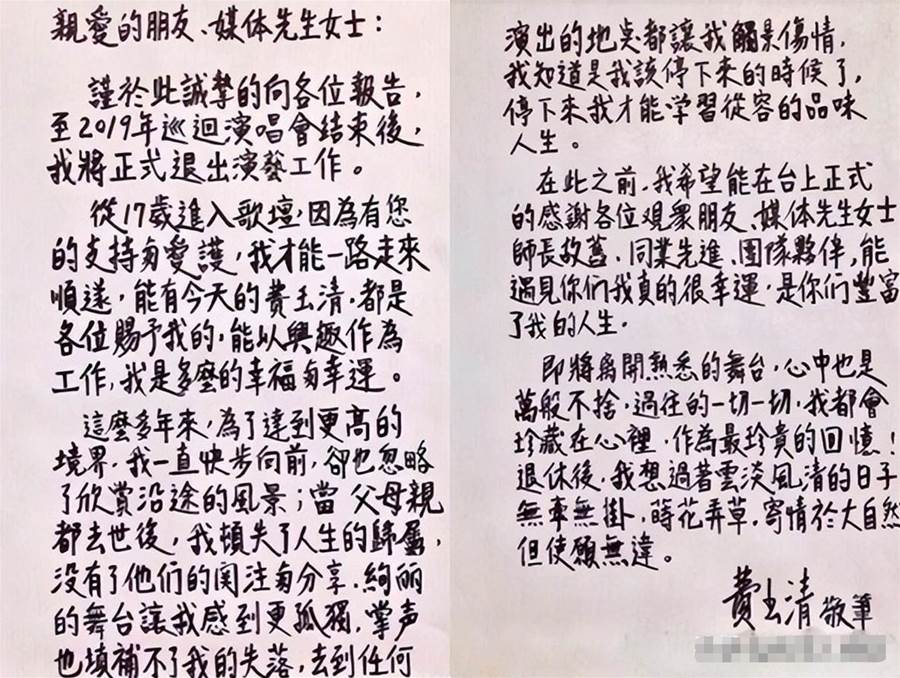 親愛的朋友、媒体先生女士：
謹於此誠摯的向各位報告，
至2019年巡迴演唱會結束後，
我將正式退出演藝工作。
從17歲進入歌壇，因為有您
的支持与愛護，我才能一路走來
順遂，能有今天的費玉清，都是
各位賜予我的，能以興趣作為
工作，我是多麼的幸福与幸運。
這麼多年來，為了達到更高的
境界，我一直快步向前，卻也忽略
了欣賞沿途的風景；當父母親
都去世後，我頓失了人生的歸屬，
没有了他們的関注与分享，絢丽
的舞台讓我感到更孤獨，掌声
也填補不了我的失落，去到任何
演出的地点都讓我觸景傷情，
我知道是我該停下來的時候了，
停下來我才能学習從容的品味
人生。
在此之前，我希望能在台上正式
的感謝各位观衆朋友、媒体先生女士
師長故舊、同業先進、團隊夥伴，能
遇見你們我真的很幸運，是你們豐富
了我的人生，
即將离開熟悉的舞台，心中也是
萬般不捨，過往的一切一切，我都會
珍藏在心裡，作為最珍貴的回憶！
退休後，我想過著雲淡風清的日子
無牽無掛，蒔花弄草，寄情於大自然
但使願無違。
費玉清 敬筆